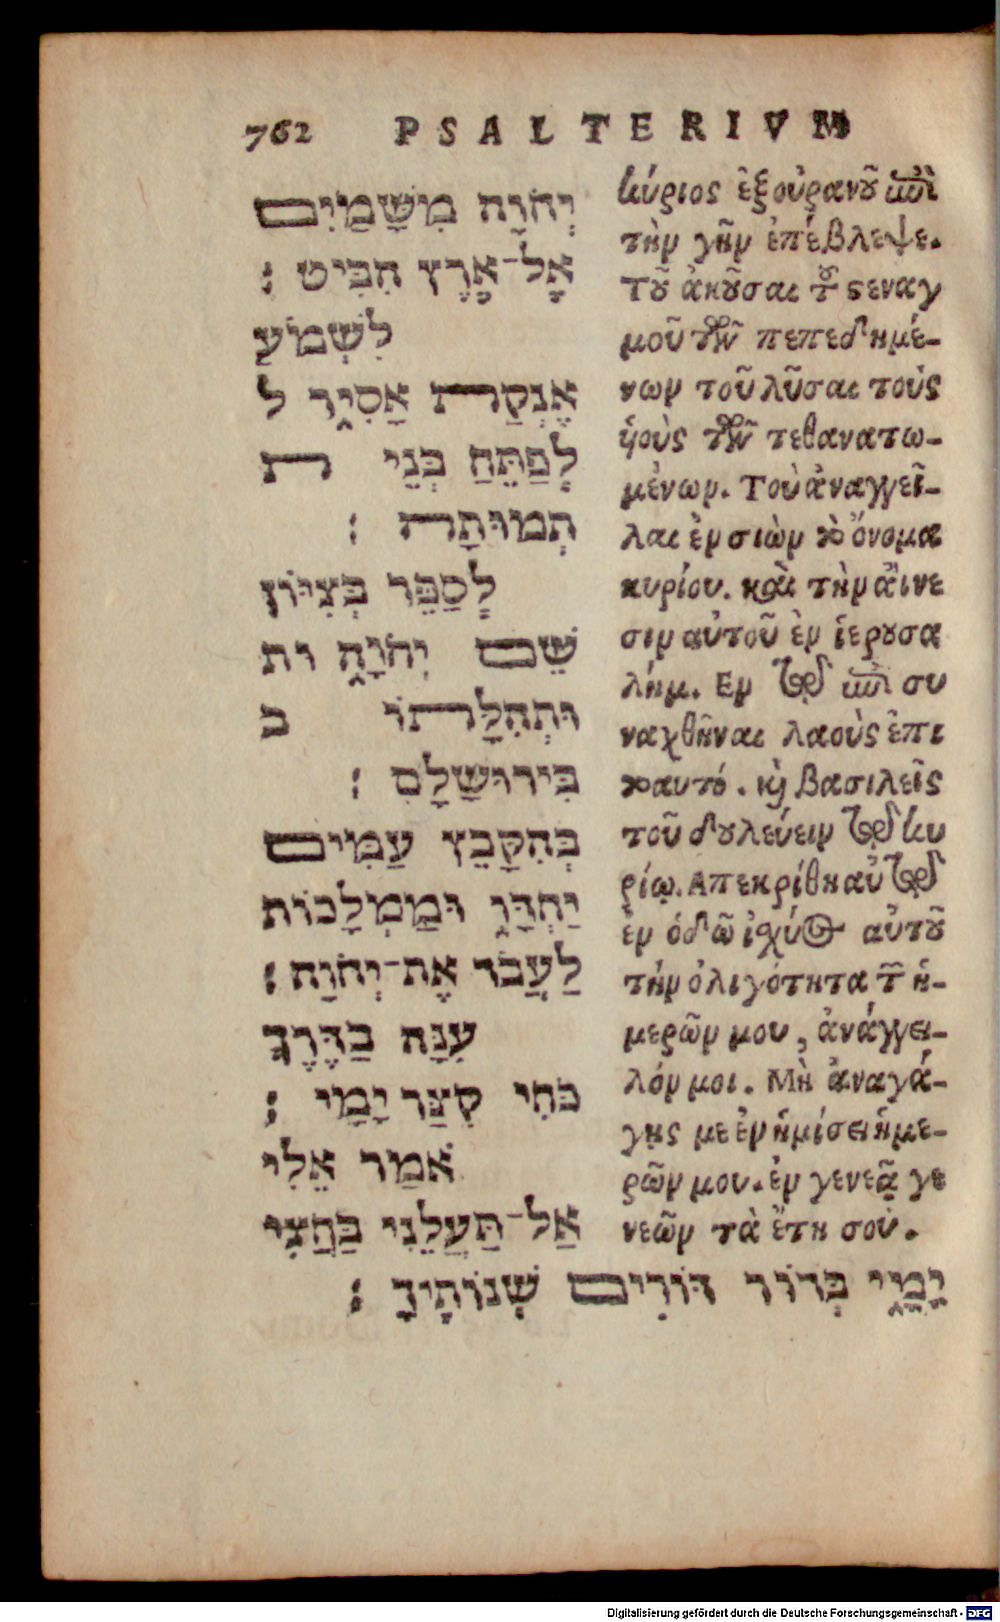 762 PSALTERIVM
יְהֹוָה מִשָּׁמַיִם
אֶל־אֶרֶץ הִבִּיט ׃
לִשְׁמֹעַ
אֶנְקַת אָסִיר ל
לְפַתֵּחַ בְּנֵי ת
תְמוּתָה ׃
לְסַפֵּר בְּצִיּוֹן
שֵׁם יְהֹוָה ות
וּתְהִלָּתוֹ ב
בִּירוּשָׁלָםִ ׃
בְּהִקָּבֵץ עַמִּים
יַחְדָּו וּמַמְלָכוֹת
לַעֲבֹד אֶת־יְהֹוָה ׃
עִנָּה בַדֶּרֶךְ
כֹּחִי קִצַּר יָמָי ׃
אֹמַר אֵלִי
אַל־תַּעֲלֵנִי בַּחֲצִי
יָמָי בְּדוֹר דּוֹרִים שְׁנוֹתֶיךָ ׃
κύριος ἐξ οὐρανοῦ ἐπὶ
τὴν γῆν ἐπέβλεψε.
Τοῦ ἀκοῦσαι τοῦ στεναγ
μοῦ τῶν πεπεδημέ-
νων τοῦ λῦσαι τοὺς
ὑιοὺς τῶν τεθανατω-
μένων. Τοὺ ἀναγγεῖ-
λαι ἐν σιὼν τὸ ὄνομα
κυρίου. καὶ τὴν ἄινε
σιν αὐτοῦ ἐν ἱερουσα
λήμ. Εν τῷ ἐπι συ
ναχθῆναι λαοὺς ἐπι
τοαυτό. καὶ βασιλεῖς
τοῦ δουλεύειν τῷ κυ
ρίῳ. Απεκρίθη αὐτῷ
ἐν ὁδῶ ἰσχύος αὐτοῦ
τὴν ὀλιγότητα τῶν ἡ-
μερῶν μου, ἀνάγγει-
λόν μοι. Μὴ ἀναγά-
γῃς με ἐν ἡμίσει ἡμε-
ρῶν μου. ἐν γενεᾷ γε
νεῶν τὰ ἔτη σοὺ.
Digitalisierung gefördert durch die Deutsche Forschungsgemeinschaft - DFG